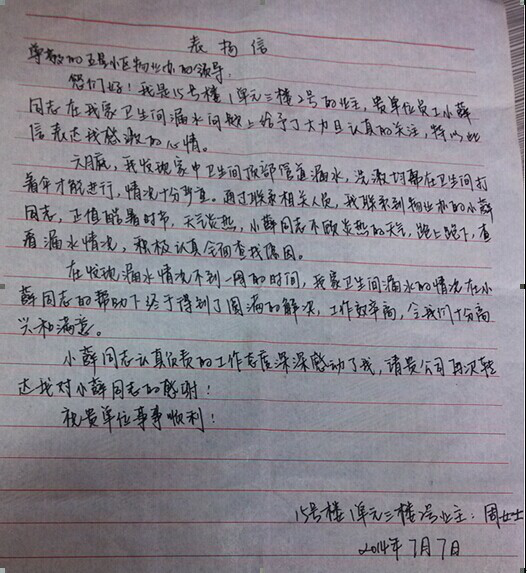 表扬信
尊敬的五号小区物业办的领导,
您们好!我是15号楼1单元三楼2号的业主,贵单位员工小薛
同志在我家卫生间漏水问题上给予了大力且认真的关注,特以此
信表达我感激的心情。
六月底,我发现家中卫生间顶部管道漏水,洗漱时都在卫生间打
着伞才能进行,情况十分紧急。通过联系相关人员,我联系到物业办的小薛
同志,正值酷暑时节,天气炎热,小薛同志不顾炎热的天气,跑上跑下,查
看漏水情况,积极认真全面查找原因。
在发现漏水情况不到一周的时间,我家卫生间漏水的情况在小
薛同志的帮助下终于得到了圆满的解决,工作效率高,令我们十分高
兴和满意。
小薛同志认真负责的工作态度深深感动了我,请贵公司再次转
达我对小薛同志的感谢!
祝贵单位事事顺利!
15号楼1单元三楼2号业主:周女士
2014年7月7日